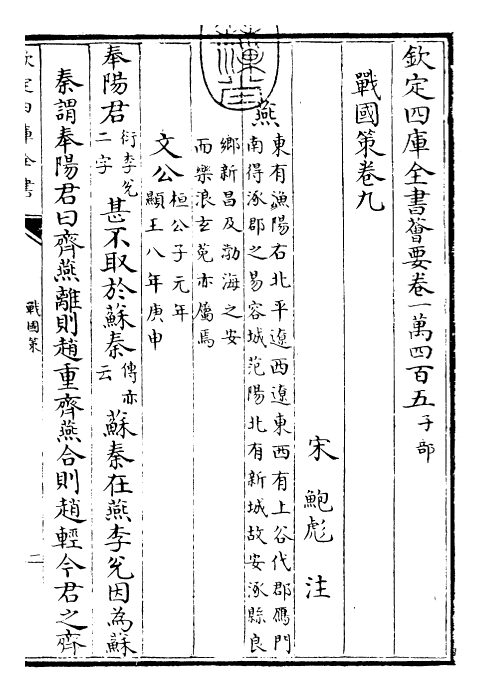 欽定四庫全書薈要卷一萬四百五子部
戰國策卷九
宋 鮑彪 注
燕
東有漁陽右北平遼西遼東西有上谷代郡鴈門
南得涿郡之易容城范陽北有新城故安涿縣良
鄉新昌及渤海之安
而樂浪玄菟亦屬焉
文公
桓公子元年
顯王八年庚申
奉陽君衍李兊二字甚不取於蘇秦傳亦云蘇秦在燕李兊因為蘇
秦謂奉陽君曰齊燕離則趙重齊燕合則趙輕今君之齊
欽定四庫全書
戰國策